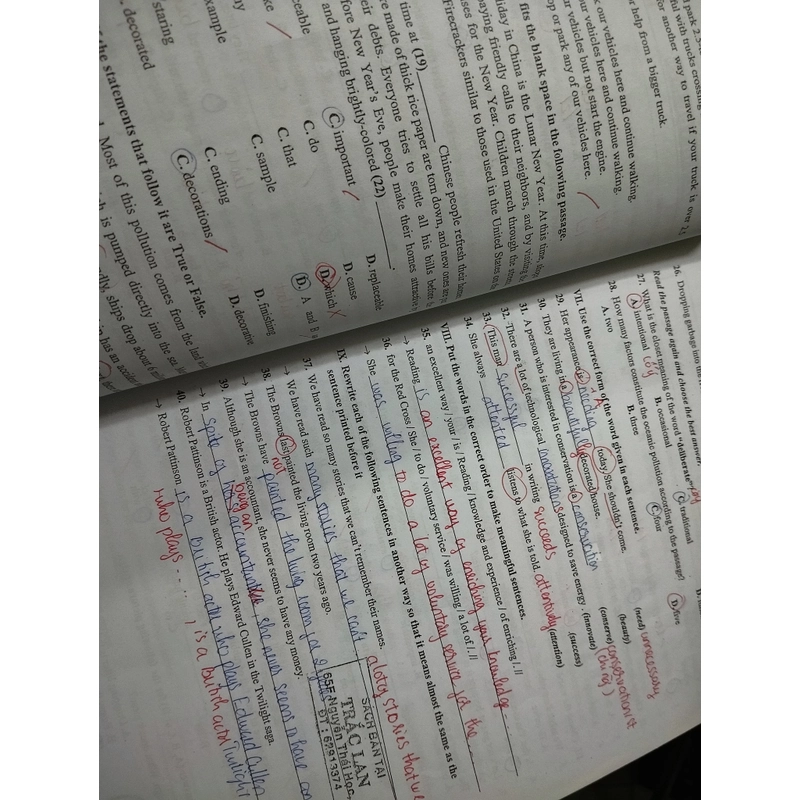 park 2.5
ful with trucks crossing
for another way to travel if your truck is over 2.5
or help from a bigger truck.
our vehicles here and continue walking.
our vehicles here and continue walking.
our vehicles but not start the engine.
op or park any of our vehicles here.
fits the blank space in the following passage.
liday in China is the Lunar New Year. At this time,
paying friendly calls to their neighbors, and by visiting
ses for the New Year. Children march through the streets
Firecrackers similar to those used in the United States on
time at (19)______ Chinese people refresh their home
are made of thick rice paper are torn down, and new ones are
eir debts. Everyone tries to settle all his bills before
fore New Year's Eve, people make their homes attractive
and hanging brightly-colored (22)______.
C. important D. replaceable
C. do D. cause
C. that D. which
C. sample D. A and B
C. ending D. finishing
C. decorations D. decorative
ceable
ke
by
xample
staring
- decorated
f the statements that follow it are True or False.
Most of this pollution comes from the land
is pumped directly into the sea
ships drop about 6
has an accident
26. Dropping garbage into the
Read the passage again and choose the best answer.
27. What is the closet meaning of the word "deliberate"
A. intentional B. occasional C. traditional
28. How many factors constitute the oceanic pollution according to the passage?
A. two B. three C. four D. five
VII. Use the correct form of the word given in each sentence.
29. Her appearance is needing today. She shouldn't come. (need) unnecessary
30. They are living in a beautifully decorated house. (beauty)
31. A person who is interested in conservation is a conservation (conserve) conservationist
32. There are a lot of technological innovations designed to save energy. (innovate)
33. This man successful in writing succeeds (success)
34. She always attented listens to what she is told. attentively (attention)
VIII. Put the words in the correct order to make meaningful sentences.
35. an excellent way / your / is / Reading / knowledge and experience / of enriching /. //
→ Reading is an excellent way of enriching your knowledge
36. for the Red Cross / She / to do / voluntary service / was willing / a lot of /. //
→ She was willing to do a lot of voluntary service for the
IX. Rewrite each of the following sentences in another way so that it means almost the same as the
sentence printed before it
37. We have read so many stories that we can't remember their names.
→ We have read such many stories that we can't a lot of stories that we
38. The Browns last painted the living room two years ago.
→ The Browns have not painted the living room for 2
39. Although she is an accountant, she never seems to have any money.
→ In spite of being an accountant she never seems to have
40. Robert Pattinson is a British actor. He plays Edward Cullen in the Twilight saga.
→ Robert Pattinson is a British actor who plays Edward Cullen
who plays ... , is a British actor Twilight
SÁCH BÁN TẠI
TRÁC LAN
65F Nguyễn Thái Học,
ĐT: 62913374